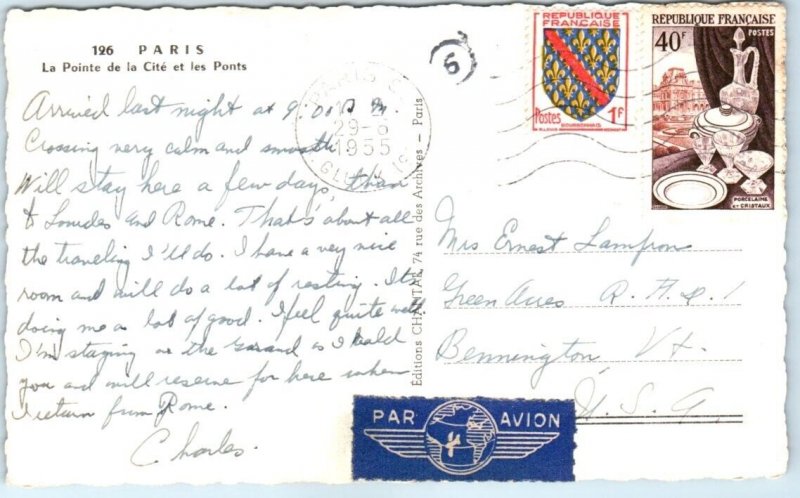 126 PARIS
La Pointe de la Cité et les Ponts
Arrived last night at 9.00 P.M.
Crossing very calm and smooth
Will stay here a few days, than
to Lourdes and Rome. That's about all
the traveling I'll do. I have a very nice
room and will do a lot of resting. Its
doing me a lot of good. I feel quite well
I'm staying at the as I told
you and will reserve for here when
I return from Rome.
Charles.
Éditions CHANTAL, 74 rue des Archives - Paris
PARIS
29-6
1955
6
REPUBLIQUE
FRANÇAISE
Postes 1F
BOURBONNAIS
REPUBLIQUE FRANÇAISE
40F POSTES
PORCELAINE
ET CRISTAUX
Mrs Ernest Lampron
Green Acres R.F.D. 1
Bennington Vt.
U.S.A.
PAR AVION